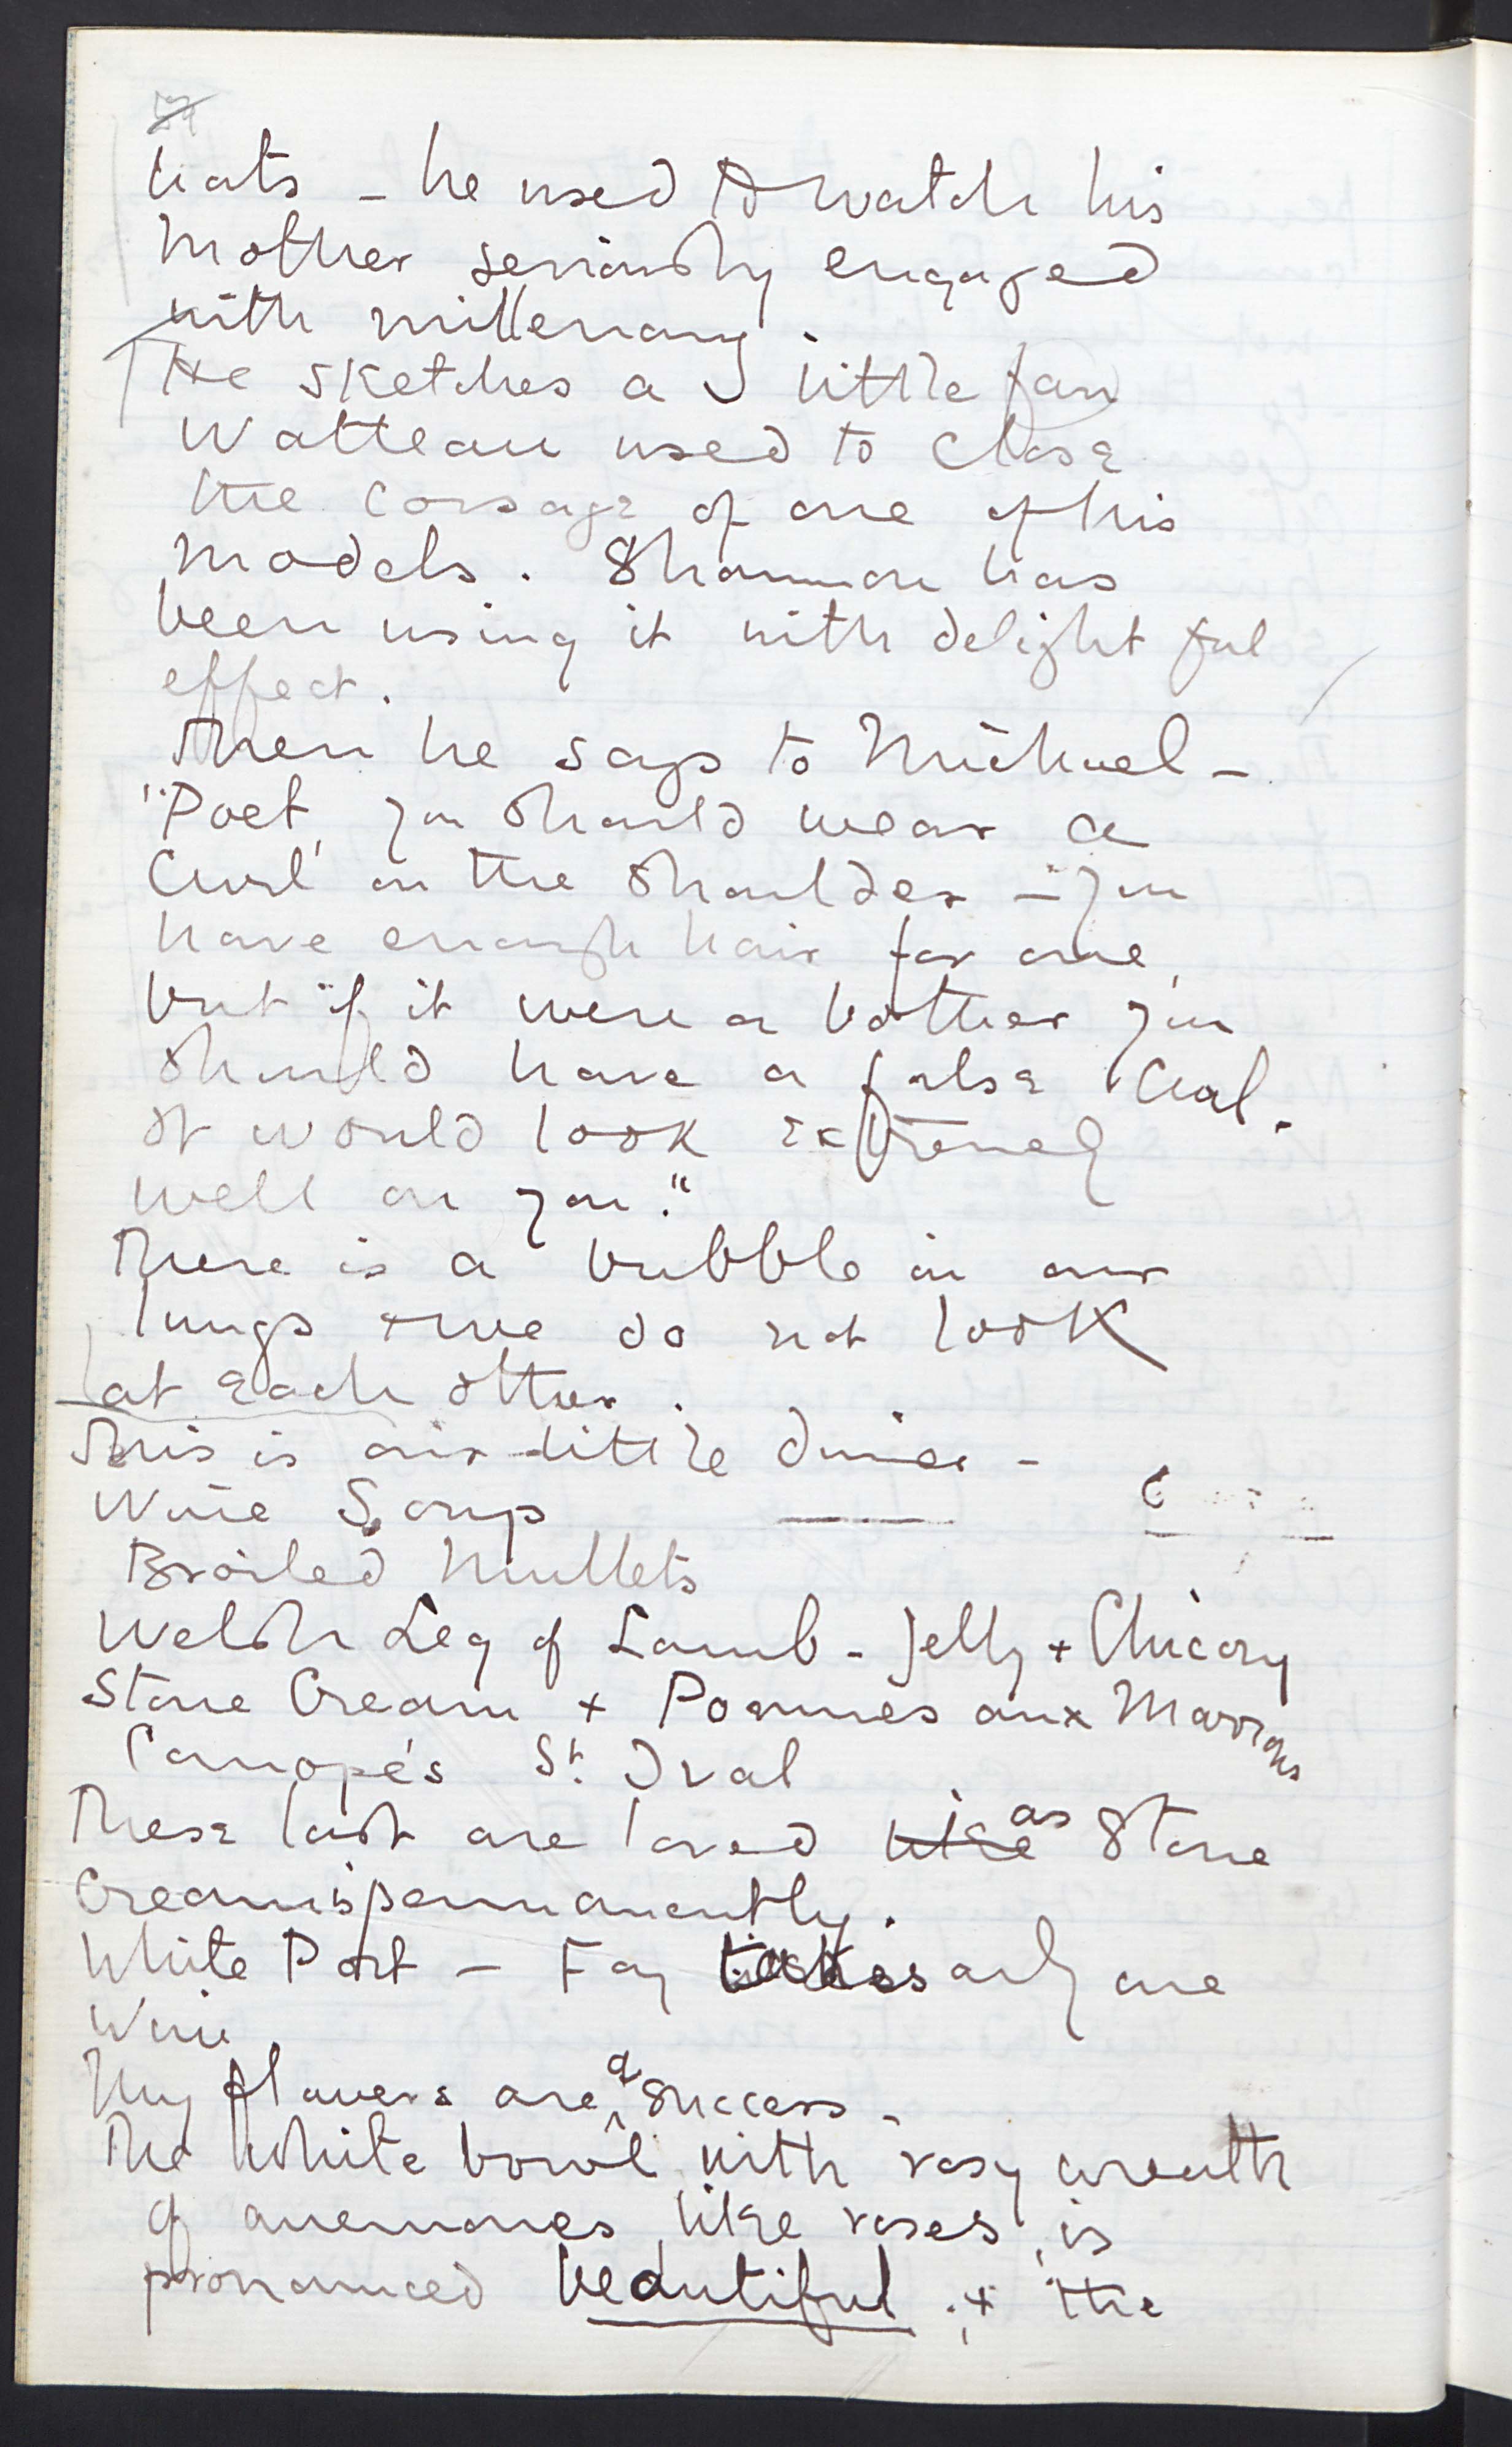 hats – he used to watch his
mother seriously engaged
with millenary.
He sketches a little fan
Watteau used to close
the corsage of one of his
models. Shannon has
been using it with delightful
effect.
Then he says to Michael –
"Poet, you should wear a
Curl on the shoulder – you
have enough hair for one,
but if it were a bother you
should have a false Curl.
It would look extremely
well on you."
There is a bubble in our
lungs & we do not look
at each other.
This is our little dinner –
Wine Soup
Broiled Mullets
Welsh Leg of Lamb – Jelly + Chicory
Stone Cream + Pommes aux Marrons
Canopés St. Ival
These last are loved like as Stone
Cream is permanently.
White Port – Fay takes only one
Wine
My flowers are a success –
The white bowl with rosy wreath
of anemones, like roses, is
pronounced beautiful; + the